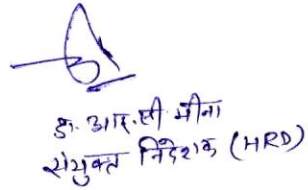 डा. आर. सी मीना
संयुक्त निदेशक (HRD)